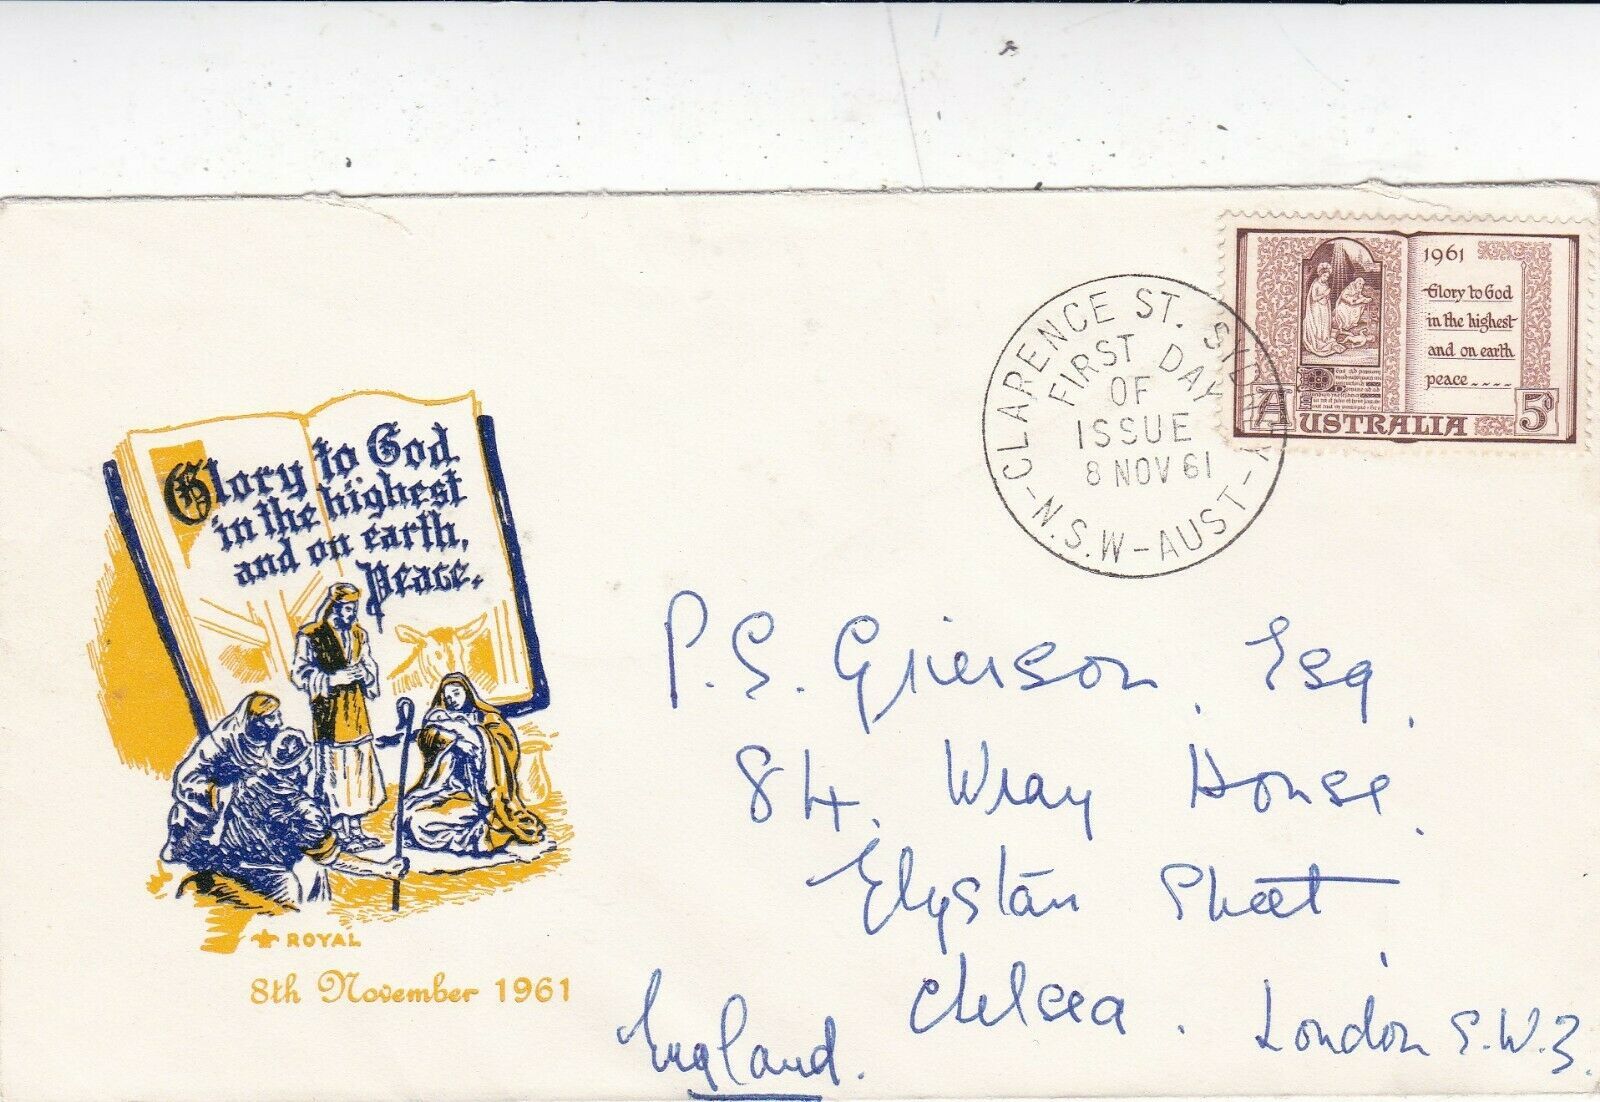 1961
Glory to God
in the highest
and on earth
peace....
AUSTRALIA 5D
CLARENCE ST. SYDNEY
-N.S.W-AUST-
FIRST DAY
OF
ISSUE
8 NOV 61
Glory to God
in the highest
and on earth,
Peace.
ROYAL
8th November 1961
P. S. Grierson Esq.
84. Wray House.
Elystan Street
Chelsea. London S.W.3.
England.